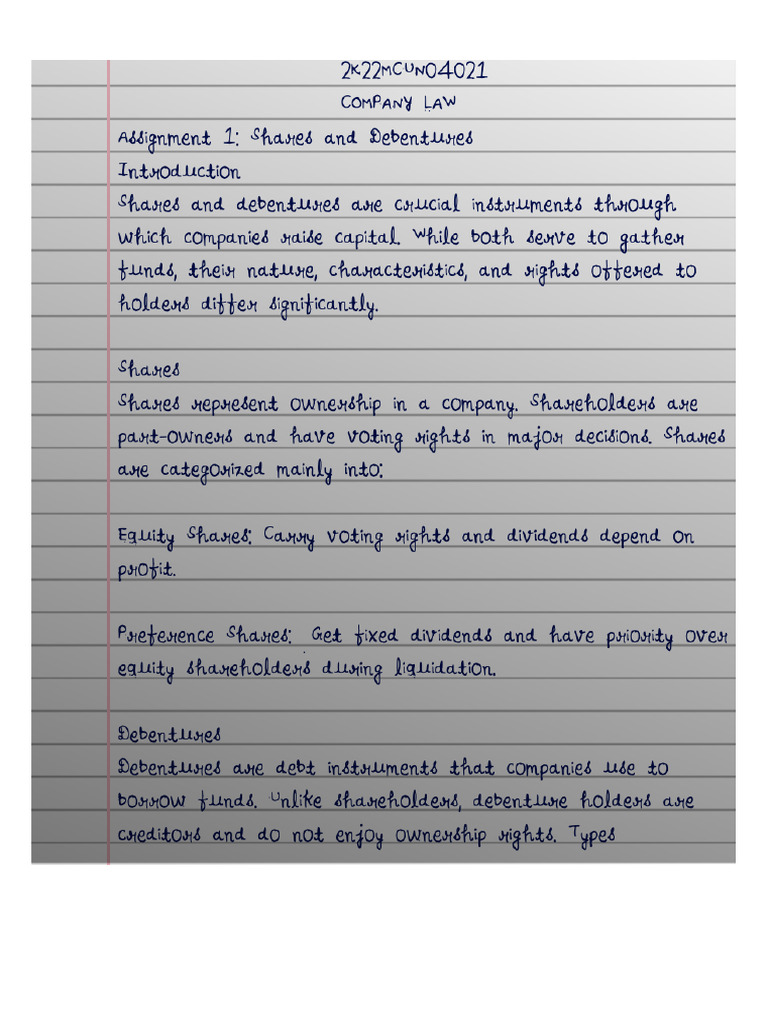 2K22MCUN04021
COMPANY LAW
Assignment 1: Shares and Debentures
Introduction
Shares and debentures are crucial instruments through
which companies raise capital. While both serve to gather
funds, their nature, characteristics, and rights offered to
holders differ significantly.
Shares
Shares represent ownership in a company. Shareholders are
part-owners and have voting rights in major decisions. Shares
are categorized mainly into:
Equity Shares: Carry voting rights and dividends depend on
profit.
Preference Shares: Get fixed dividends and have priority over
equity shareholders during liquidation.
Debentures
Debentures are debt instruments that companies use to
borrow funds. Unlike shareholders, debenture holders are
creditors and do not enjoy ownership rights. Types